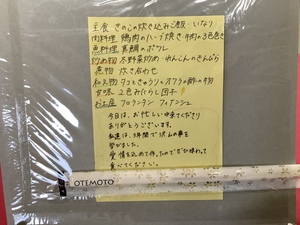 主食 きのこの炊き込みご飯・いなり
肉料理 鶏肉のハーブ焼き・牛肉の3色巻き
魚料理 真鯛のポワレ
炒め物 冬野菜炒め・れんこんのきんぴら
煮物 炊き合わせ
和え物 タコときゅうりとオクラの酢の物
甘味 2色みたらし団子
お土産 フロランタン フィナンシェ
今日は、お忙しい中来てくださり
ありがとうございます。
私達は、3年間で沢山の事を
学びました。
愛情を込めて作ったのでぜひ味わって
食べてください。
OTEMOTO